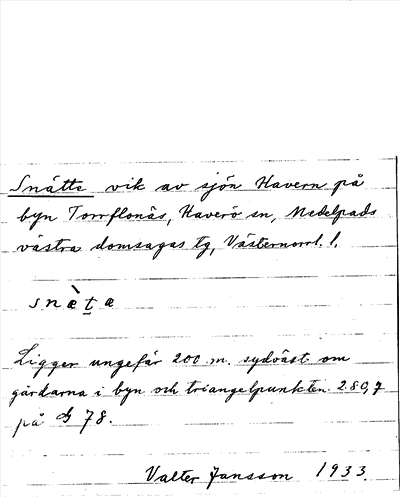 Snätte vik av sjön Havern på
byn Torrflonäs, Haverö sn, Medelpads
västra domsagas tg, Västernorrl. l.
snæ̀t̠æ
Ligger ungefär 200 m. sydväst om
gårdarna i byn och triangelpunkten 280,7
på 78.
Valter Jansson 1933.